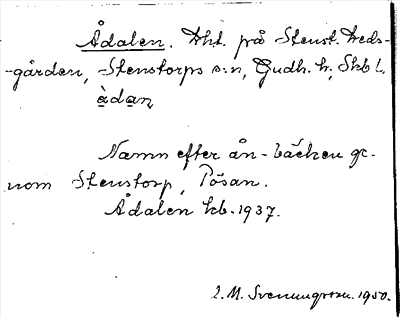 Ådalen. Dht. på Stenst. Heds-
-gården, Stenstorps s:n, Gudh. h., Skb l.
àdan
Namn efter ån - bäcken ge-
nom Stenstorp, Pösan.
Ådalen kb. 1937.
I. M. Svenungsson. 1950.